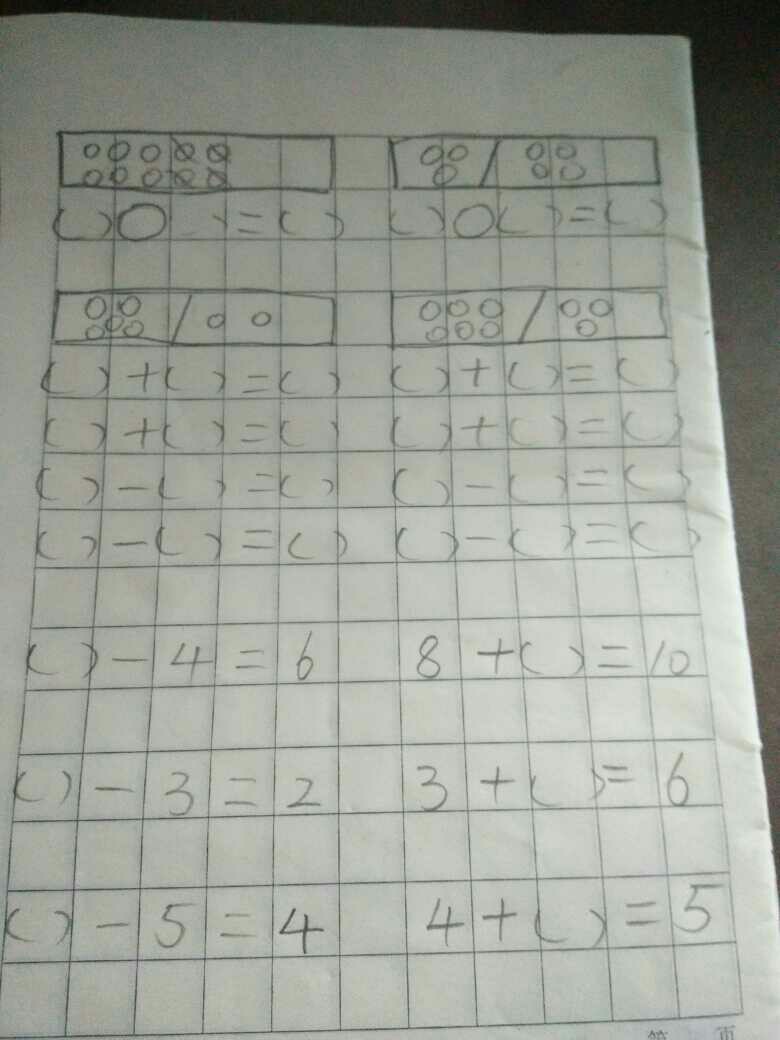 ( ) ○ ( ) = ( ) ( ) ○ ( ) = ( )
( ) + ( ) = ( ) ( ) + ( ) = ( )
( ) + ( ) = ( ) ( ) + ( ) = ( )
( ) - ( ) = ( ) ( ) - ( ) = ( )
( ) - ( ) = ( ) ( ) - ( ) = ( )
( ) - 4 = 6 8 + ( ) = 10
( ) - 3 = 2 3 + ( ) = 6
( ) - 5 = 4 4 + ( ) = 5
第 页